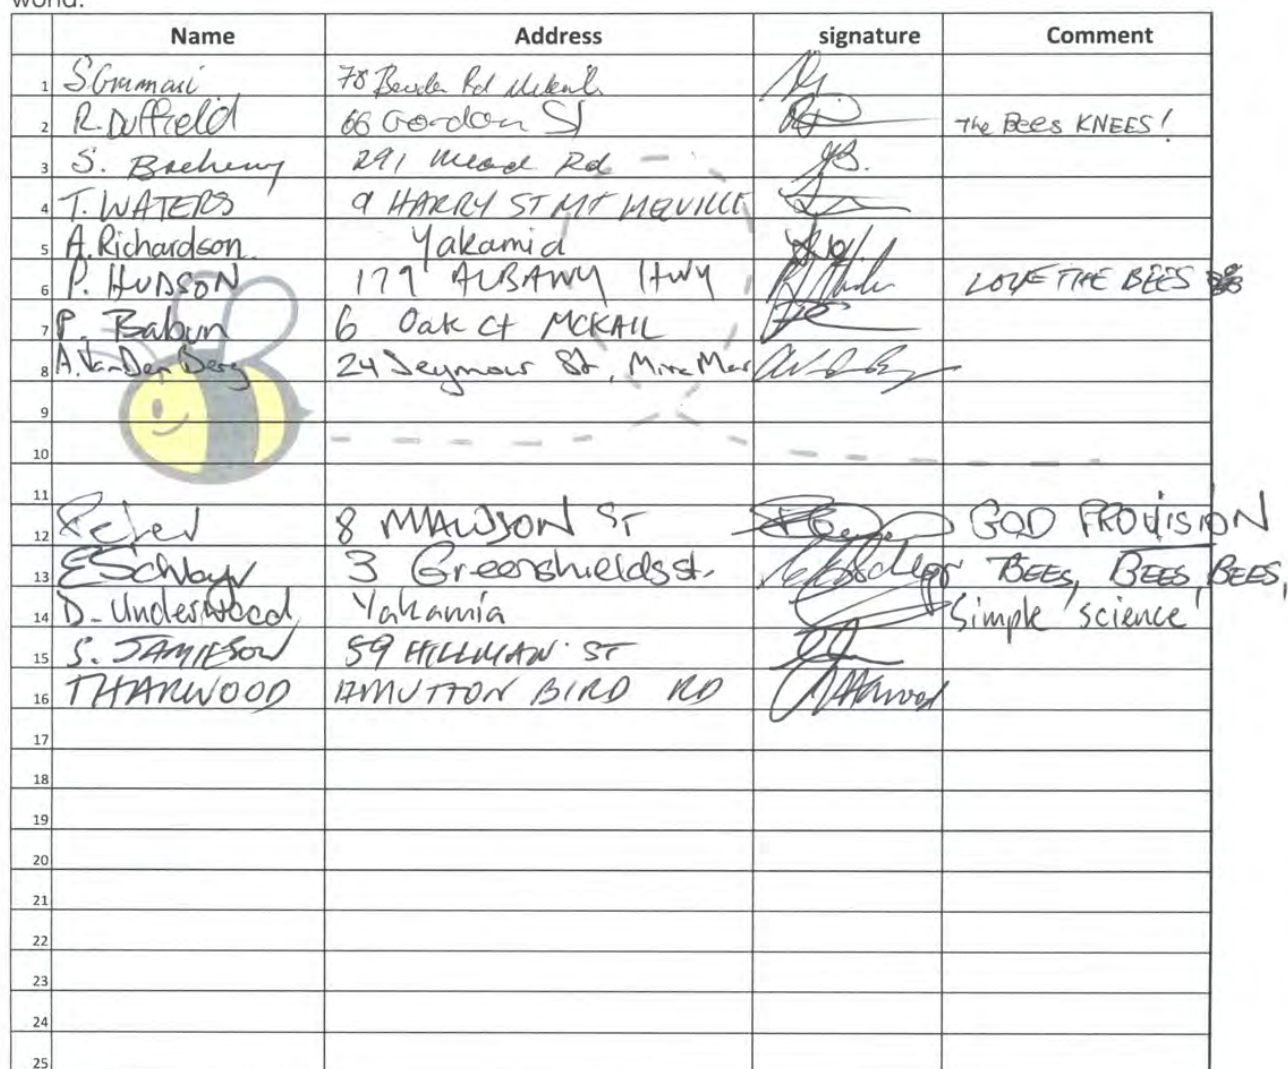 world.
Name Address signature Comment
1 78 Rd
2 R. Duffield 66 Gordon St The Bees KNEES!
3 S. 291 Mead Rd
4 T. WATERS 9 HARRY ST MT MELVILLE
5 A. Richardson. Yakamia
6 P. HUDSON 179 ALBANY HWY LOVE THE BEES
7 P. Babun 6 Oak Ct MCKAIL
8 A. Van Den Berg 24 Seymour St, Mira Mar
9
10
11
12 Peter 8 MAWSON ST GOD PROVISION
13 3 Greenshields st. BEES, BEES, BEES,
14 D. Underwood Yakamia Simple science
15 S. JAMIESON 59 HILLMAN ST
16 T HARWOOD MUTTON BIRD RD
17
18
19
20
21
22
23
24
25